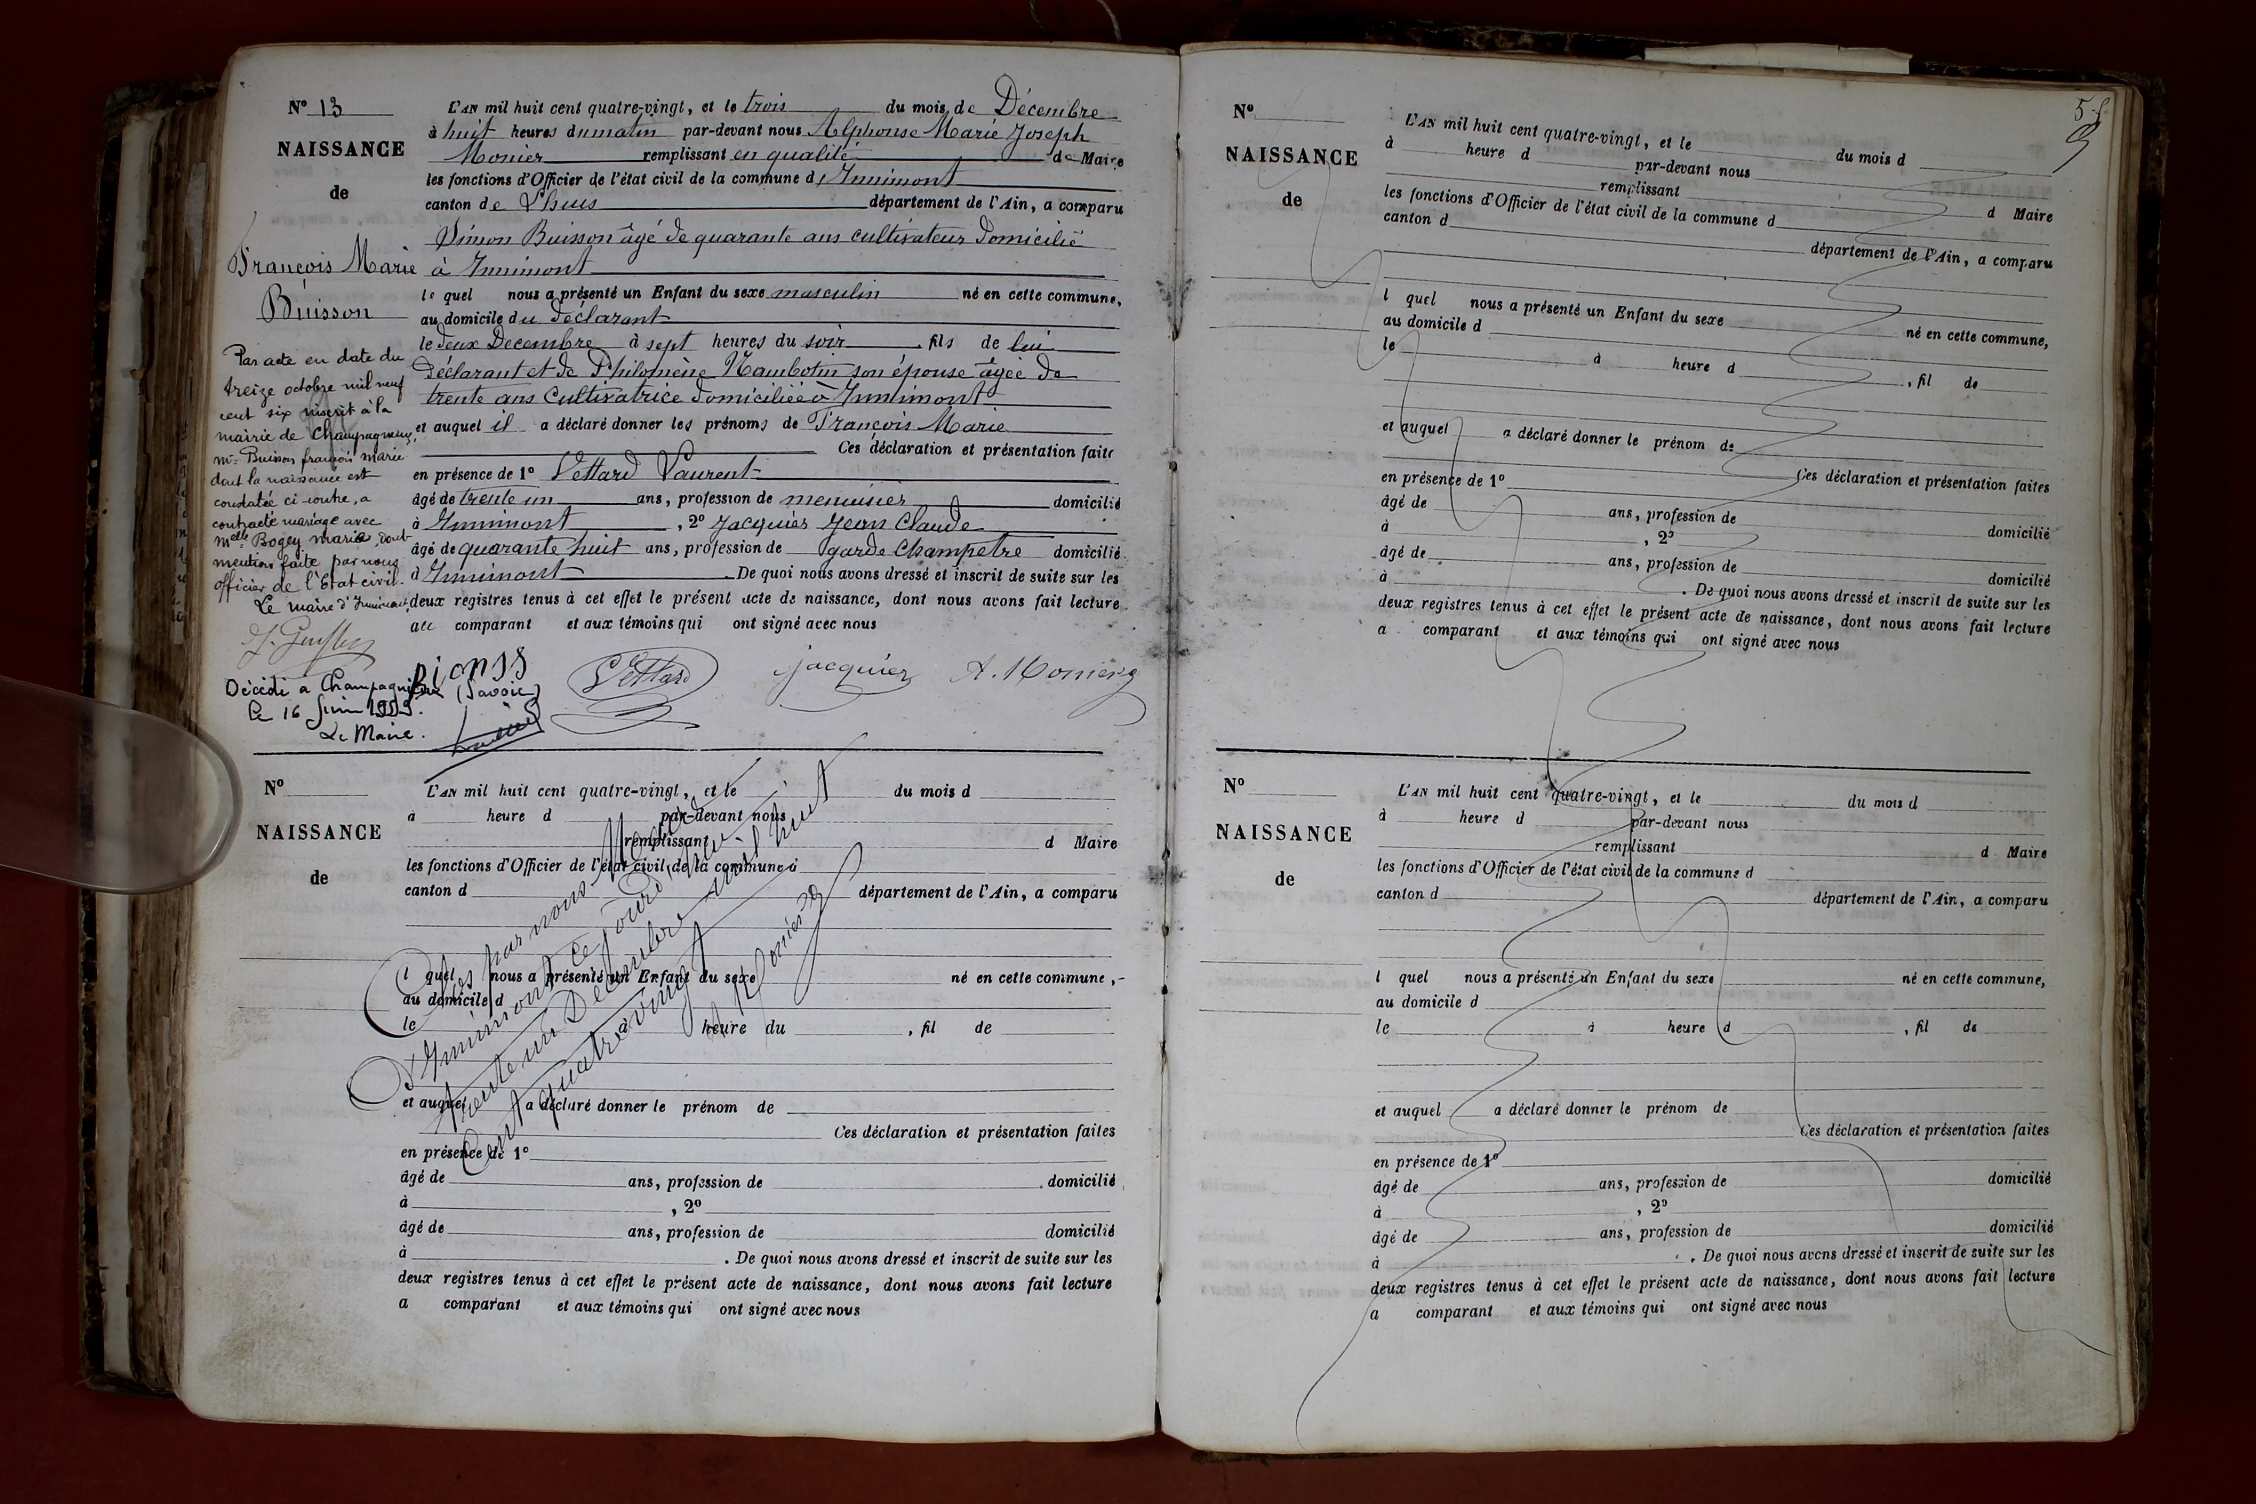 N° 13
NAISSANCE
de
François Marie
Buisson
Par acte en date du
treize octobre mil neuf
cent six inscrit à la
mairie de Champagneux,
Mr Buisson françois marie
dont la naissance est
constatée ci-contre, a
contracté mariage avec
Melle Bogey maria, dont
mention faite par nous
officier de l'Etat civil.
Le maire d'Innimont,
Décédé à Champagneux (Savoie)
le 16 Juin
Le Maire.
L'AN mil huit cent quatre-vingt, et le trois du mois de Décembre
à huit heures du matin par-devant nous Alphonse Marie Joseph
Monier remplissant en qualité de Maire
les fonctions d'Officier de l'état civil de la commune d'Innimont
canton de Lhuis département de l'Ain, a comparu
Simon Buisson âgé de quarante ans cultivateur domicilié
à Innimont
lequel nous a présenté un Enfant du sexe masculin né en cette commune,
au domicile du déclarant
le deux Décembre à sept heures du soir, fils de lui
déclarant et de Philomène Nambotin son épouse âgée de
trente ans Cultivatrice domiciliée à Innimont
et auquel il a déclaré donner les prénoms de François Marie
Ces déclaration et présentation faites
en présence de 1° Vettard Laurent
âgé de trente un ans, profession de menuisier domicilié
à Innimont, 2° Jacquier Jean Claude
âgé de quarante huit ans, profession de garde champetre domicilié
à Innimont. De quoi nous avons dressé et inscrit de suite sur les
deux registres tenus à cet effet le présent acte de naissance, dont nous avons fait lecture
au comparant et aux témoins qui ont signé avec nous
Vettard Jacquier A. Monier
N°
NAISSANCE
de
L'AN mil huit cent quatre-vingt, et le du mois d
à heure d par-devant nous
remplissant d Maire
les fonctions d'Officier de l'état civil de la commune d
canton d département de l'Ain, a comparu
l quel nous a présenté un Enfant du sexe né en cette commune,
au domicile d
le à heure du, fil de
et auquel a déclaré donner le prénom de
Ces déclaration et présentation faites
en présence de 1°
âgé de ans, profession de domicilié
à, 2°
âgé de ans, profession de domicilié
à. De quoi nous avons dressé et inscrit de suite sur les
deux registres tenus à cet effet le présent acte de naissance, dont nous avons fait lecture
a comparant et aux témoins qui ont signé avec nous
Clos par nous Maire
d'Innimont ce jourd'hui
trente un Décembre mil huit
Cent quatre vingt
A. Monier
N°
NAISSANCE
de
L'AN mil huit cent quatre-vingt, et le du mois d
à heure d par-devant nous
remplissant d Maire
les fonctions d'Officier de l'état civil de la commune d
canton d département de l'Ain, a comparu
l quel nous a présenté un Enfant du sexe né en cette commune,
au domicile d
le à heure d, fil de
et auquel a déclaré donner le prénom de
Ces déclaration et présentation faites
en présence de 1°
âgé de ans, profession de domicilié
à, 2°
âgé de ans, profession de domicilié
à. De quoi nous avons dressé et inscrit de suite sur les
deux registres tenus à cet effet le présent acte de naissance, dont nous avons fait lecture
a comparant et aux témoins qui ont signé avec nous
N°
NAISSANCE
de
L'AN mil huit cent quatre-vingt, et le du mois d
à heure d par-devant nous
remplissant d Maire
les fonctions d'Officier de l'état civil de la commune d
canton d département de l'Ain, a comparu
l quel nous a présenté un Enfant du sexe né en cette commune,
au domicile d
le à heure d, fil de
et auquel a déclaré donner le prénom de
Ces déclaration et présentation faites
en présence de 1°
âgé de ans, profession de domicilié
à, 2°
âgé de ans, profession de domicilié
à. De quoi nous avons dressé et inscrit de suite sur les
deux registres tenus à cet effet le présent acte de naissance, dont nous avons fait lecture
a comparant et aux témoins qui ont signé avec nous